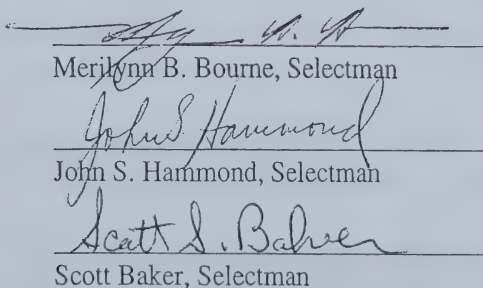 Merilynn B. Bourne, Selectman
John S Hammond
John S. Hammond, Selectman
Scott S. Baker
Scott Baker, Selectman